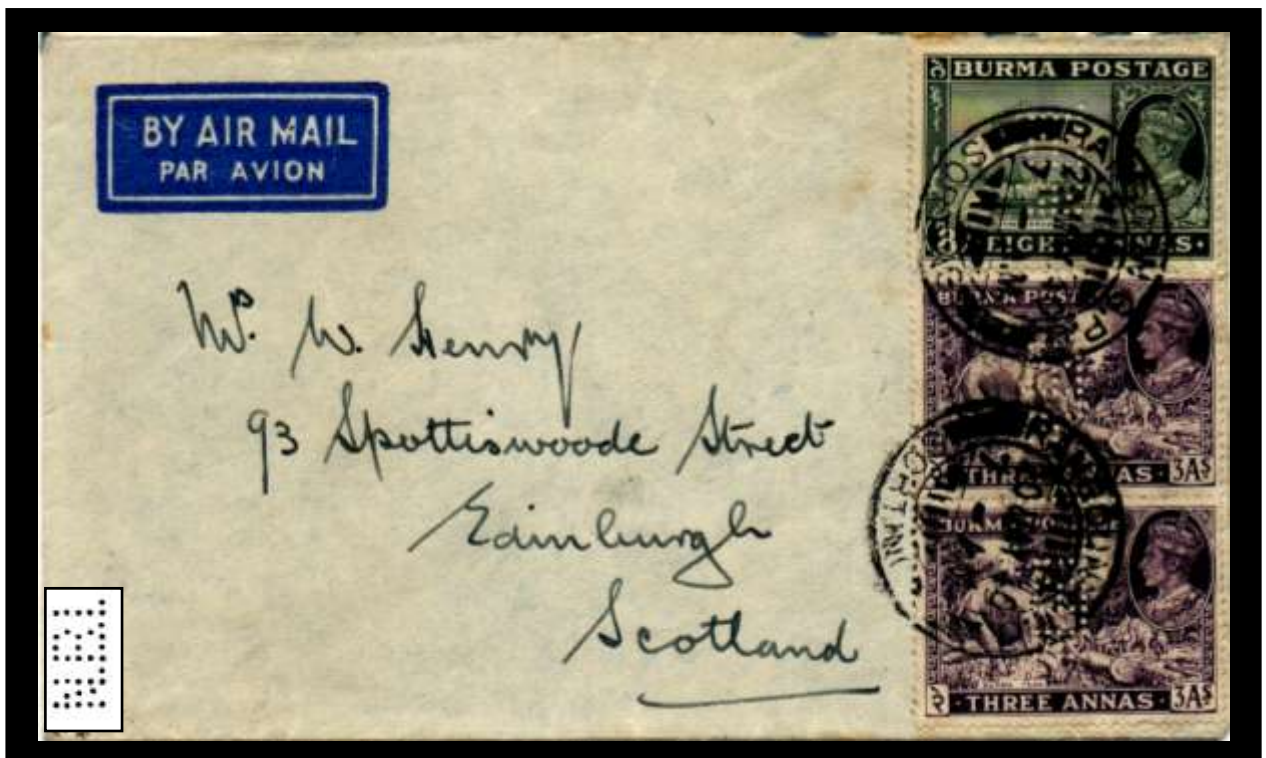 BY AIR MAIL
PAR AVION
Mr. W. Henry
93 Spottiswoode Street
Edinburgh
Scotland
BURMA POSTAGE
EIGHT ANNAS
BURMA POSTAGE
THREE ANNAS 3AS
BURMA POSTAGE
THREE ANNAS 3AS